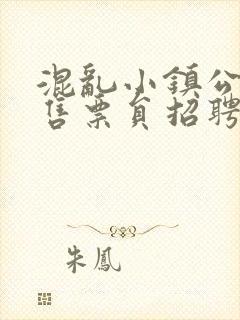 混亂小鎮公
售票員招聘
朱鳳